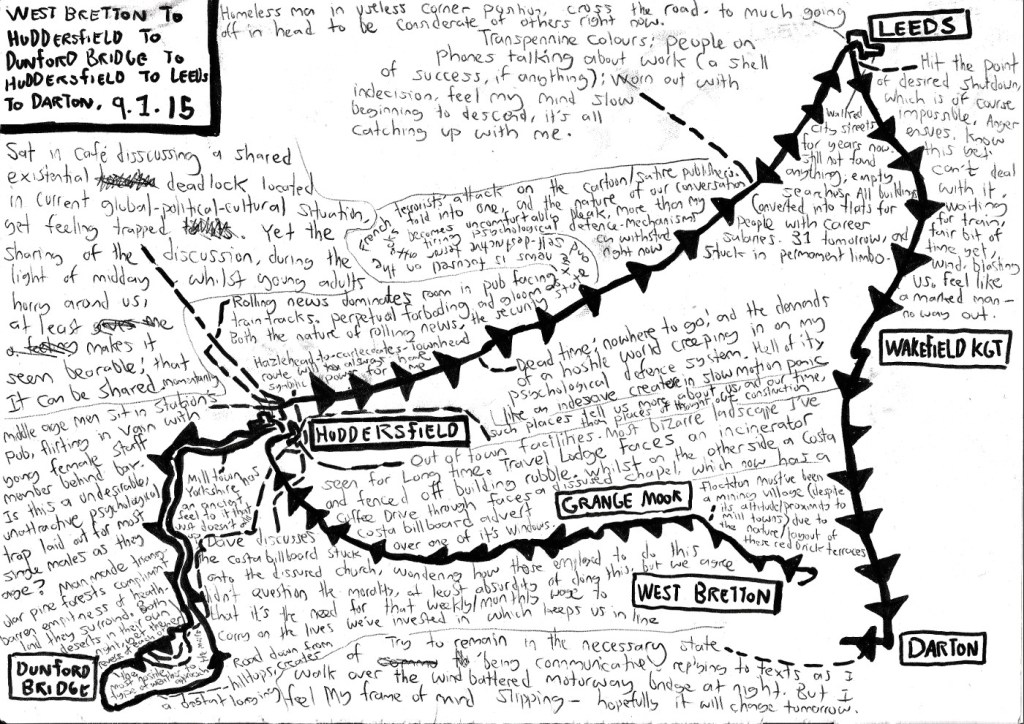 WEST BRETTON TO
HUDDERSFIELD TO
DUNFORD BRIDGE TO
HUDDERSFIELD TO LEEDS
TO DARTON. 9.1.15
Homeless man in useless corner pushun, cross the road. to much going
off in head to be considerate of others right now.
LEEDS
Transpennine colours; people on
phones talking about work (a shell
of success, if anything); worn out with
indecision, feel my mind slow
beginning to descend, it's all
catching up with me.
Hit the point
of desired shutdown,
which is of course
impossible. Anger
ensues. Know
this yet
can't deal
with it.
waiting
for train
fair bit of
time yet,
wind, blasting
us, feel like
a marked man -
no way out.
walked
city streets
for years now.
still not found
anything, empty
searches. All buildings
converted into flats for
people with career
salaries. 31 tomorrow, and
stuck in permanent limbo.
Sat in café disscussing a shared
existential deadlock located
in current global-political-cultural situation,
get feeling trapped. Yet the
sharing of the discussion, during the
light of midday, whilst young adults
hurry around us,
at least
makes it
seem bearable; that
It can be shared momentarily
French terrorists attack on the cartoon/satire publishers.
fold into one, and the nature of our conversation
becomes uncomfortably bleak, more than my
tiring psychological defence-mechanisms
can withstand
right now
news is focused on the
self-destructive
Rolling news dominates room in pub facing
train tracks. perpetual forboding and gloom as
Both the nature of rolling news, the security state
Hazlehead-to-carlecoates-townhead
route with
symbolic power for me
Dead time, 'nowhere to go', and the demands
of a hostile world creeping in on my
psychological defence system. Hell of it
Like an indesave creates in slow motion panic
such places tell us more about us and our time,
than places of thought out construction
WAKEFIELD KGT
HUDDERSFIELD
middle age men sit in Stations
pub, flirting in vain with
young female staff
member behind bar.
Is this a undesirable,
unattractive psychological
trap laid out for most
single males as they
age?
Mill town
Yorkshire has
an ancient
feel to it that
just doesn't
Out of town facilities. Most bizarre landscape I've
seen for Long time. Travel Lodge faces an incinerator
and fenced off building rubble. whilst on the other side a Costa
coffee Drive through faces a disused chapel, which now has a
costa billboard advert
over one of it's windows.
GRANGE MOOR
Flockton must've been
a mining village (despite
its altitude/proximity to
mill towns) due to
the nature/layout of
those red brick terraces
Dave discusses
the costa billboard stuck
onto the disused church, wondering how those employed to do this
didn't question the morality, at least absurdity of doing this, but we agree
that it's the need for that weekly/monthly wage to
carry on the lives we've invested in which keeps us in line
WEST BRETTON
Man made triang-
ular pine forests compliment
barren emptiness of heath-
land they surround. Both
deserts in their own
right
DUNFORD
BRIDGE
Road down from
hilltops, creates
a distant longing
Try to remain in the necessary state
of 'being communicative' replying to texts as I
walk over the wind battered motorway bridge at night. But I
feel My frame of mind slipping - hopefully it will change tomorrow.
DARTON